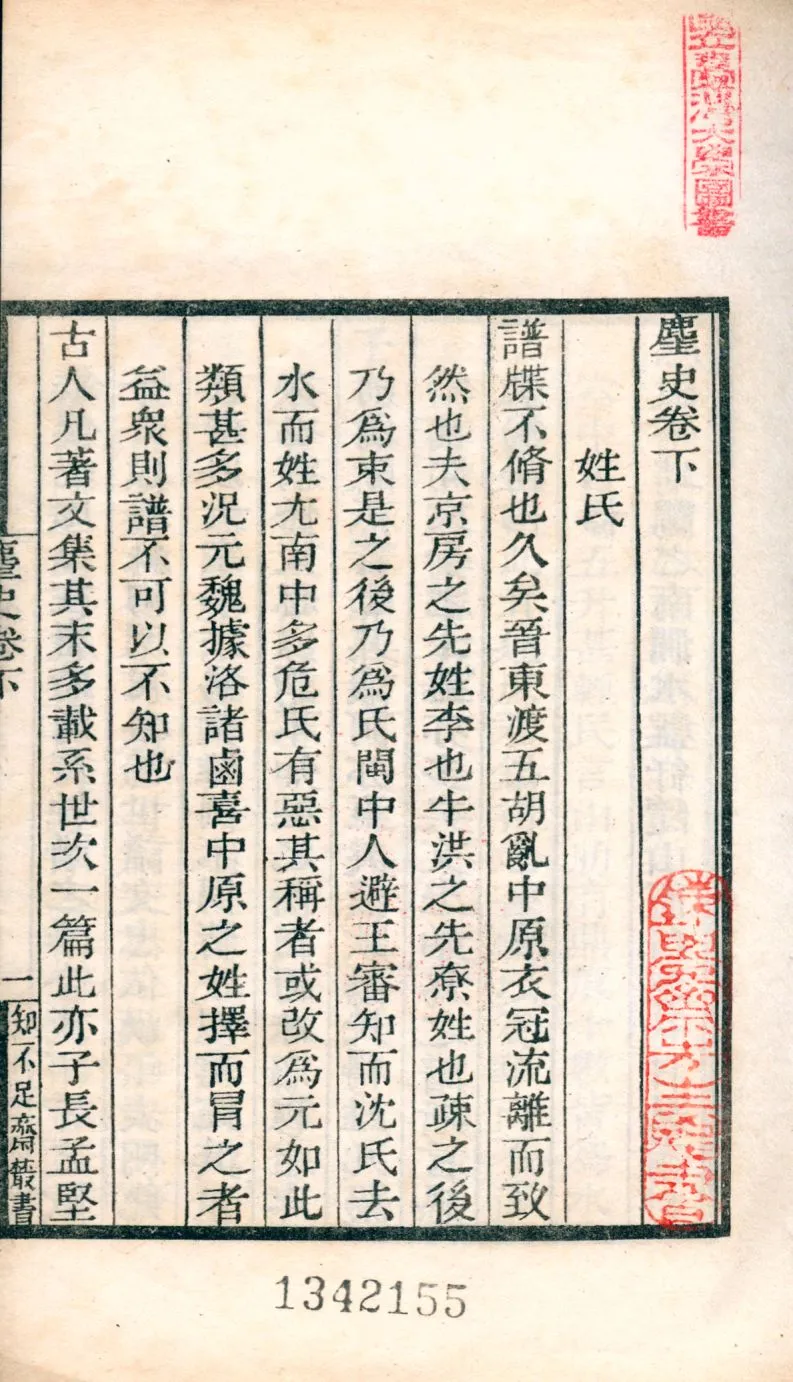 麈史卷下
姓氏
譜牒不脩也久矣晉東渡五胡亂中原衣冠流離而致
然也夫京房之先姓李也牛洪之先尞姓也疎之後
乃爲束是之後乃爲氏閩中人避王審知而沈氏去
水而姓尢南中多危氏有惡其稱者或改爲元如此
類甚多況元魏據洛諸鹵喜中原之姓擇而冒之者
益衆則譜不可以不知也
古人凡著文集其末多載系世次一篇此亦子長孟堅
麈史卷下
一
知不足齋叢書
1342155